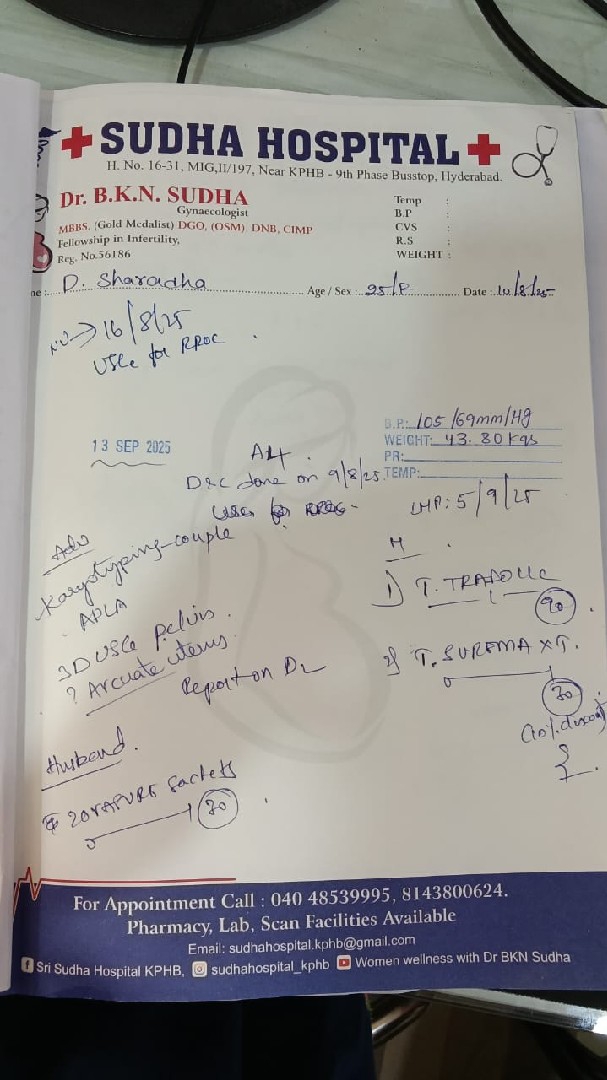 SUDHA HOSPITAL
H. No. 16-31, MIG,II/197, Near KPHB - 9th Phase Busstop, Hyderabad.
Dr. B.K.N. SUDHA
Gynaecologist
MBBS. (Gold Medalist) DGO, (OSM) DNB, CIMP
Fellowship in Infertility,
Reg. No.56186
Temp :
B.P :
CVS :
R.S :
WEIGHT :
me : D. Sharadha Age / Sex : 25/F Date : /8/25
16/8/25
USG for RPOC
13 SEP 2025
B.P.: 105/69mm/Hg
WEIGHT: 43.80 Kgs
PR:
TEMP:
D&C done on 9/8/25.
LMP: 5/9/25
Adv
Karyotyping-couple
APLA
3D USG pelvis.
? Arcuate uterus
Report on
1) T.
90
2) T. XT.
30
Husband.
sachets
30
For Appointment Call : 040 48539995, 8143800624.
Pharmacy, Lab, Scan Facilities Available
Email: sudhahospital.kphb@gmail.com
Sri Sudha Hospital KPHB, sudhahospital_kphb Women wellness with Dr BKN Sudha